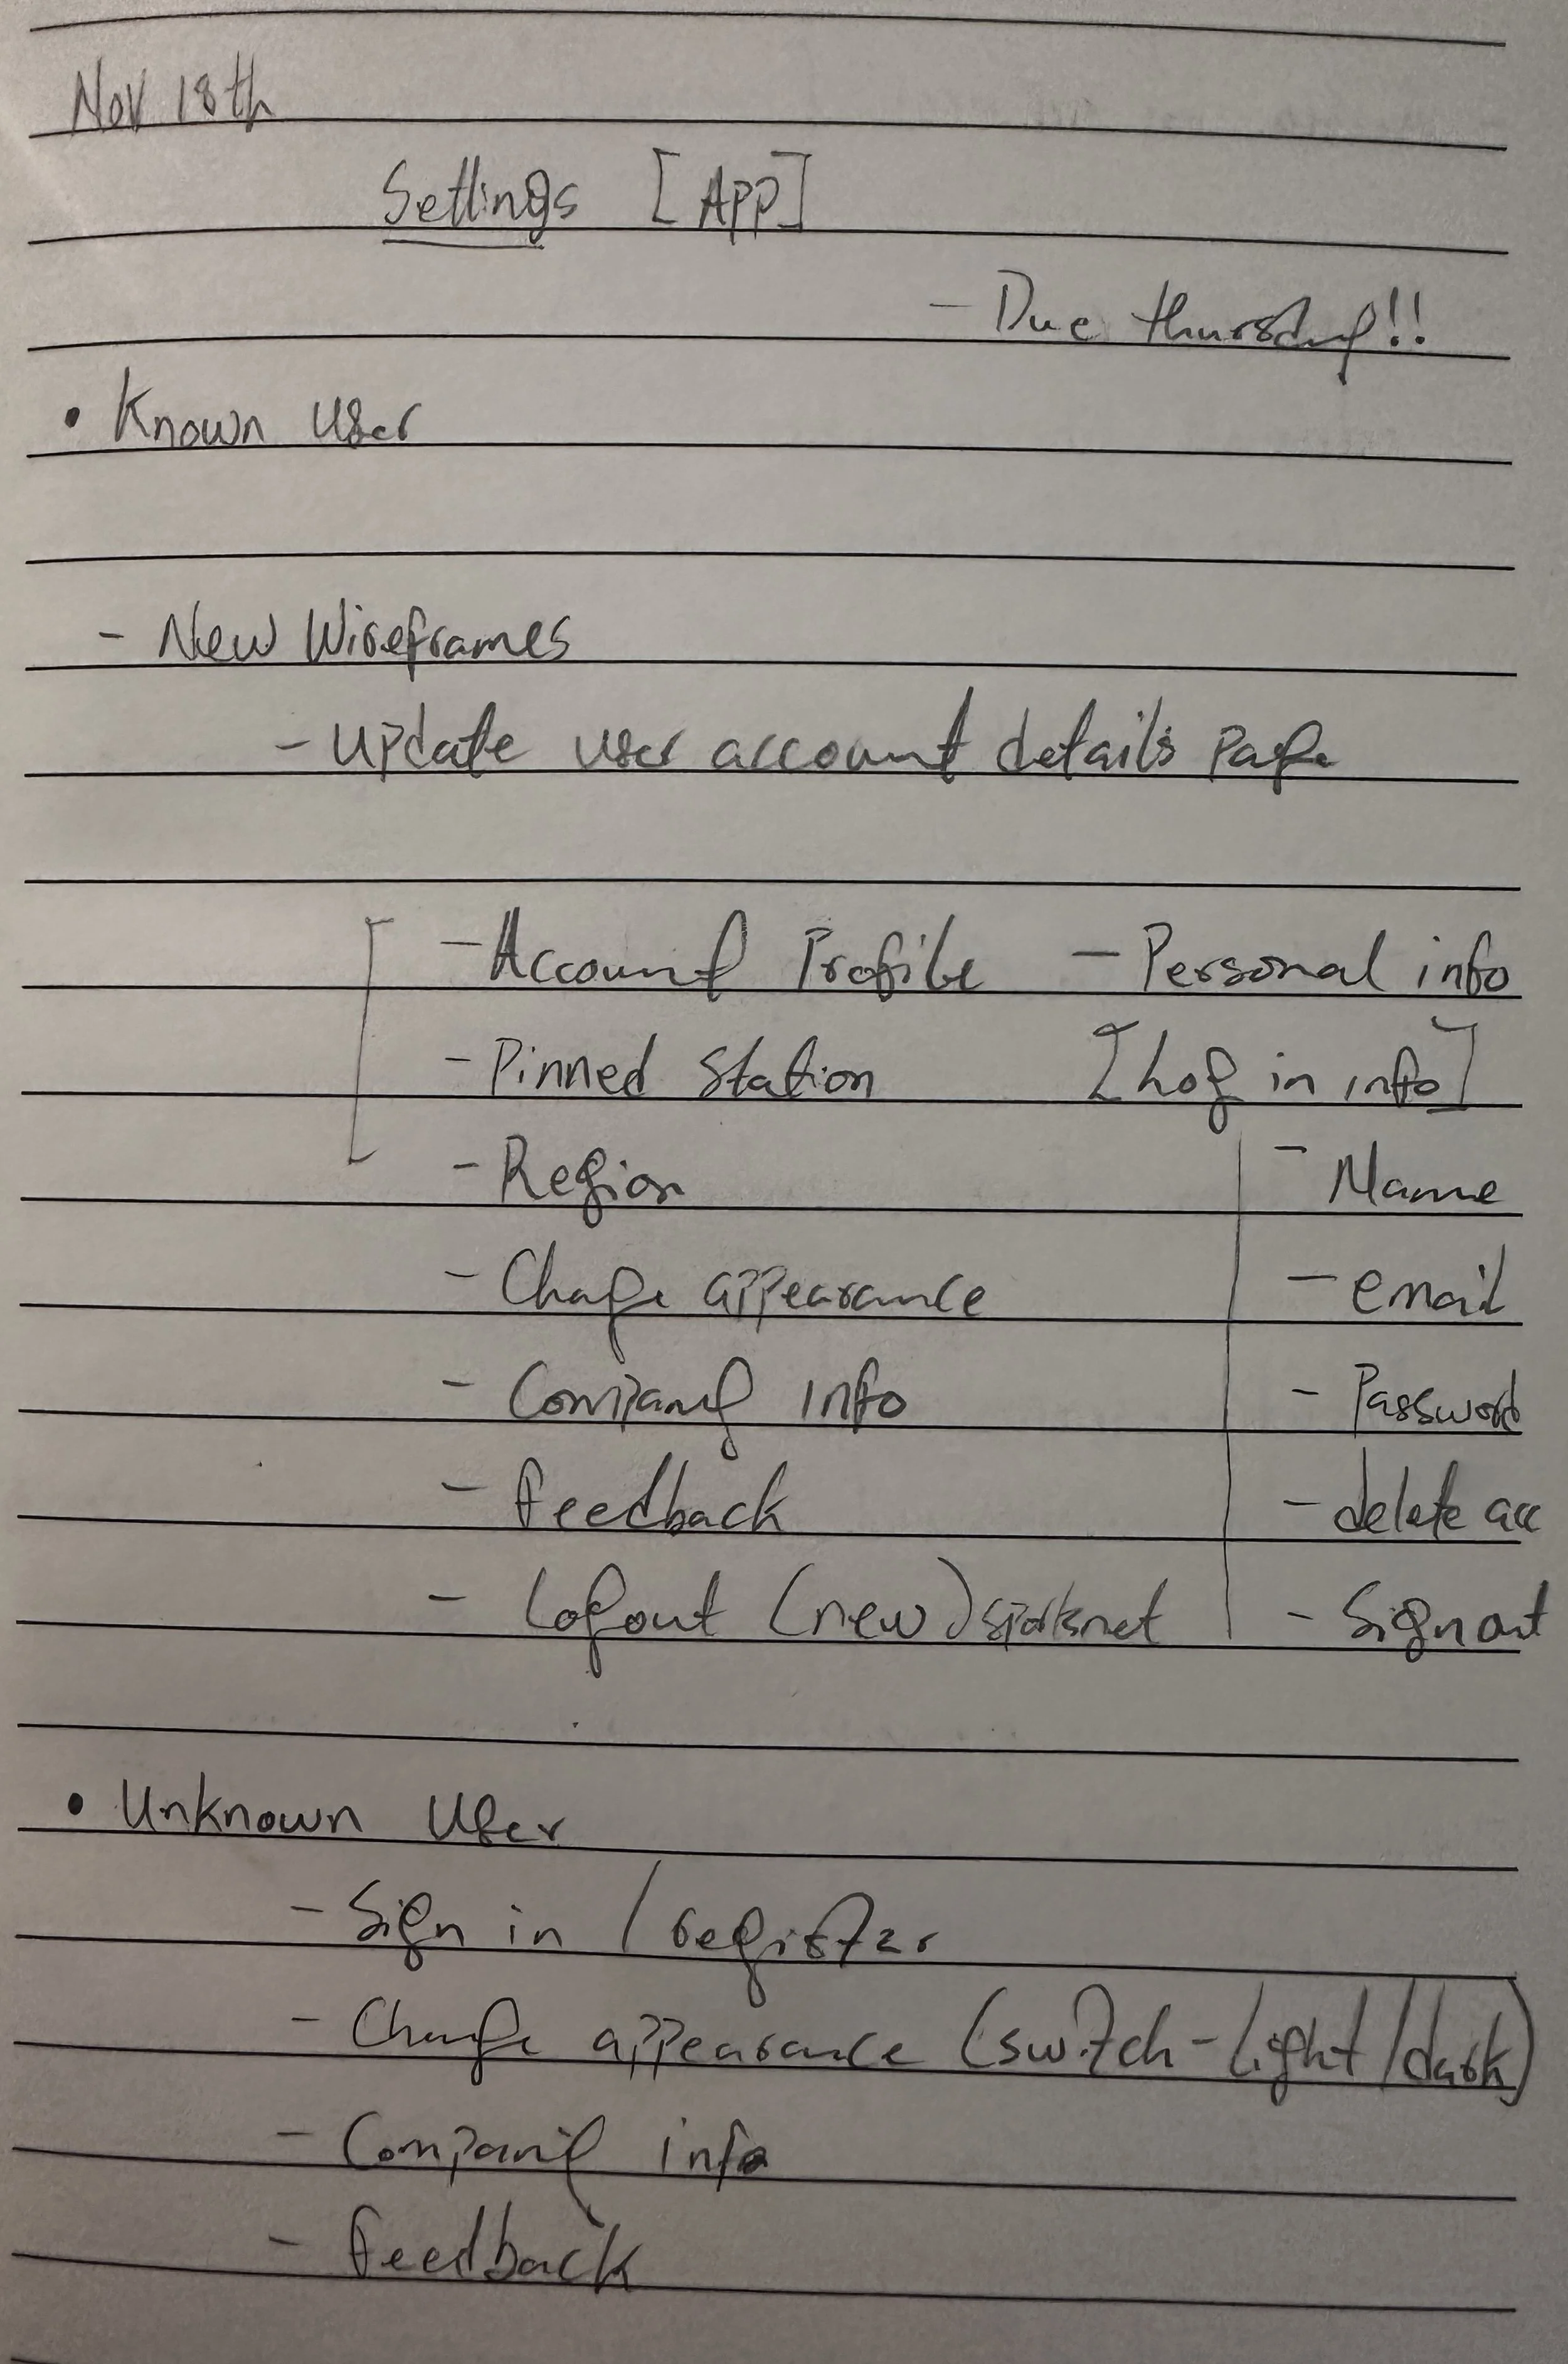 Nov 18th
Settings [APP]
- Due thursday!!
• Known User
- New Wireframes
- Update user account details page
- Account Profile - Personal info
- Pinned Station [Log in info]
- Region - Name
- Change appearance - email
- Company info - Password
- feedback - delete acc
- Logout (new) sportsnet - Sign out
• Unknown User
- Sign in / register
- Change appearance (switch - light/dark)
- Company info
- feedback